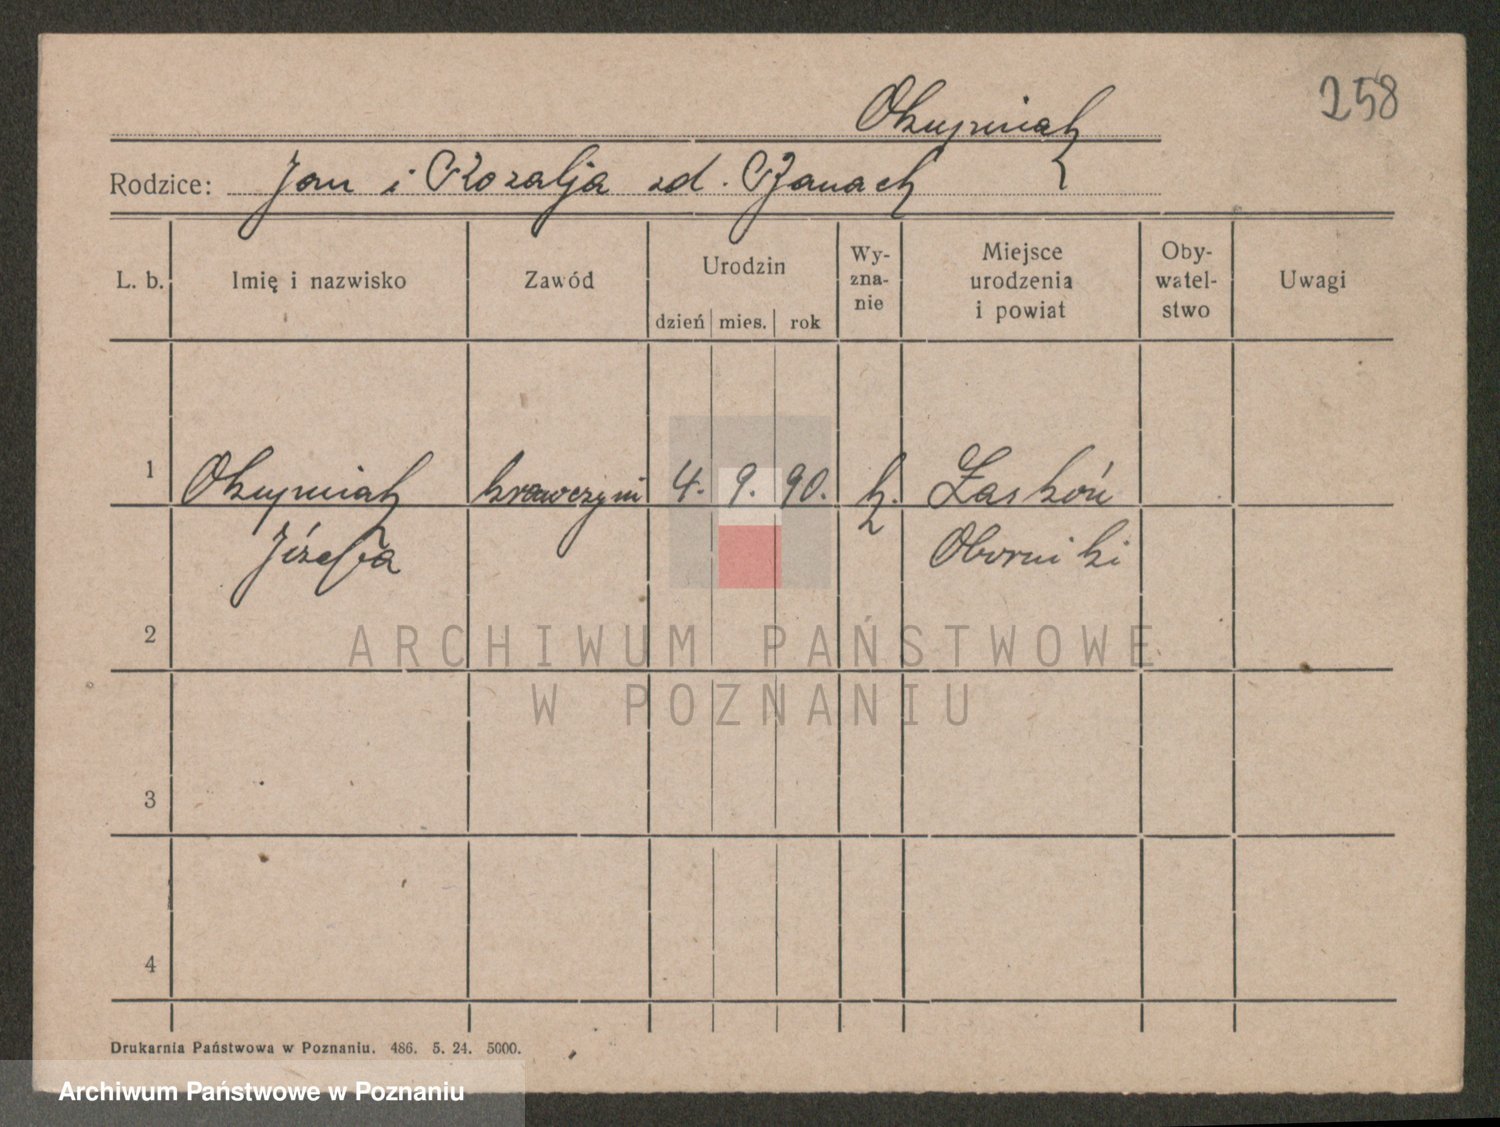 258
Okupniak
Rodzice: Jan i Rozalja zd. Banach
L. b. Imię i nazwisko Zawód Urodzin Wy-zna-nie Miejsce urodzenia i powiat Oby-watel-stwo Uwagi
dzień mies. rok
1 Okupniak krawczyni 4. 9. 90. k.
Józefa Oborniki
2
ARCHIWUM PAŃSTWOWE
W POZNANIU
3
4
Drukarnia Państwowa w Poznaniu. 486. 5. 24. 5000.
Archiwum Państwowe w Poznaniu